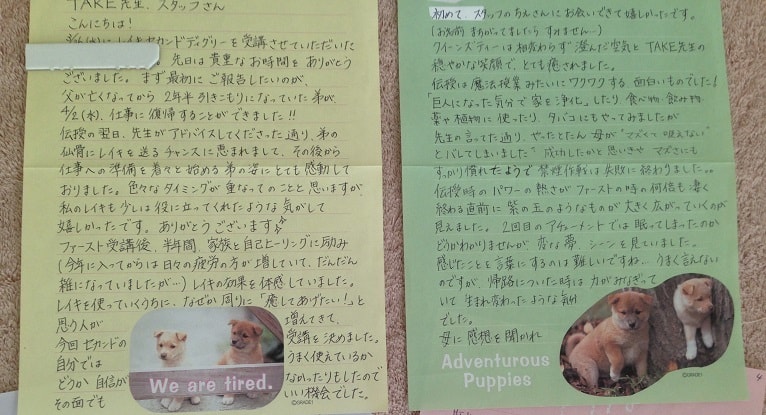 TAKE先生、スタッフさん
こんにちは!
レイキセカンドディグリーを受講させていただいた
先日は貴重なお時間を ありがとう
ございました。まず最初に ご報告したいのが、
父が亡くなってから 2年半 引きこもりになっていた弟が、
4/2(水)、仕事に 復帰することができました!!
伝授の翌日、先生が アドバイスしてくださった通り、弟の
仙骨にレイキを送るチャンスに恵まれまして、その後から
仕事への準備を着々と始める弟の姿にとても感動して
おりました。色々なタイミングが重なってのことと思いますが、
私のレイキも少しは役に立ってくれたような気がして
嬉しかったです。ありがとうございます
ファースト受講後、半年間、家族と自己ヒーリングに励み
(今年に入ってからは日々の疲労の方が増していて、だんだん
雑になっていましたが…) レイキの効果を体感していました。
レイキを使っていくうちに、なぜか周りに「癒してあげたい!」と
思う人が 増えてきて、
今回セカンドの 受講を決めました。
自分では うまく使えているか
どうか自信が なかったりもしたので
その面でも いい機会でした。
We are tired.
初めて、スタッフのちえさんにお会いできて嬉しかったです。
(お名前まちがってましたら すみません…)
クイーンズティーは相変わらず澄んだ空気と TAKE先生の
穏やかな笑顔で、とても癒されました。
伝授は魔法授業みたいにワクワクする、面白いものでした!
「巨人になった気分で家を浄化」したり、食べ物・飲み物
薬や植物に使ったり、タバコにもやってみましたが
先生の言ってた通り、やったとたん 母が"マズくて吸えない"
とバレてしまいました 成功したかと思いきや マズさにも
すっかり慣れたようで 禁煙作戦は失敗に終わりました。
伝授時のパワーの熱さが ファーストの時の何倍も凄く
終わる直前に 紫の玉のようなものが 大きく広がっていくのが
見えました。2回目のアチューメントでは 眠ってしまったのか
どうかわかりませんが、変な夢、シーンを見ていました。
感じたことを言葉にするのは難しいですね… うまく言えない
のですが、帰路についた時は 力がみなぎって
いて 生まれ変わったような気分
でした。
母に感想を聞かれ
Adventurous
Puppies